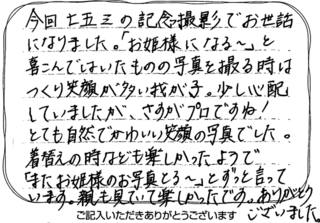 今回七五三の記念撮影でお世話
になりました。「お姫様になる～」と
喜こんではいたものの写真を撮る時は
つくり笑顔が多い我が子。少し心配
していましたが、さすがプロですね！
とても自然でかわいい笑顔の写真でした。
着替えの時なども楽しかったようで
「またお姫様のお写真とる～」とずっと言って
います。親も見ていて楽しかったです。ありがとう
ございました。
ご記入いただきありがとうございます